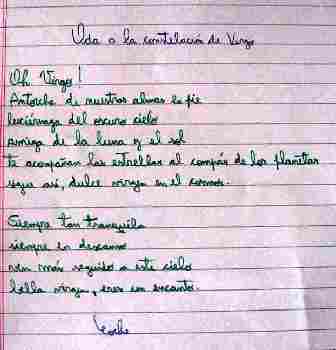 Oda a la constelación de Virgo
Oh Virgo!
Antorcha de nuestras almas la fie
luciérnaga del oscuro cielo
amiga de la luna y el sol
te acompañan las estrellas al compás de los planetas
sigue así, dulce virgen en el cosmos.
Siempre tan tranquila
siempre en descanso
ven más seguido a este cielo
bella virgen, eres un encanto.